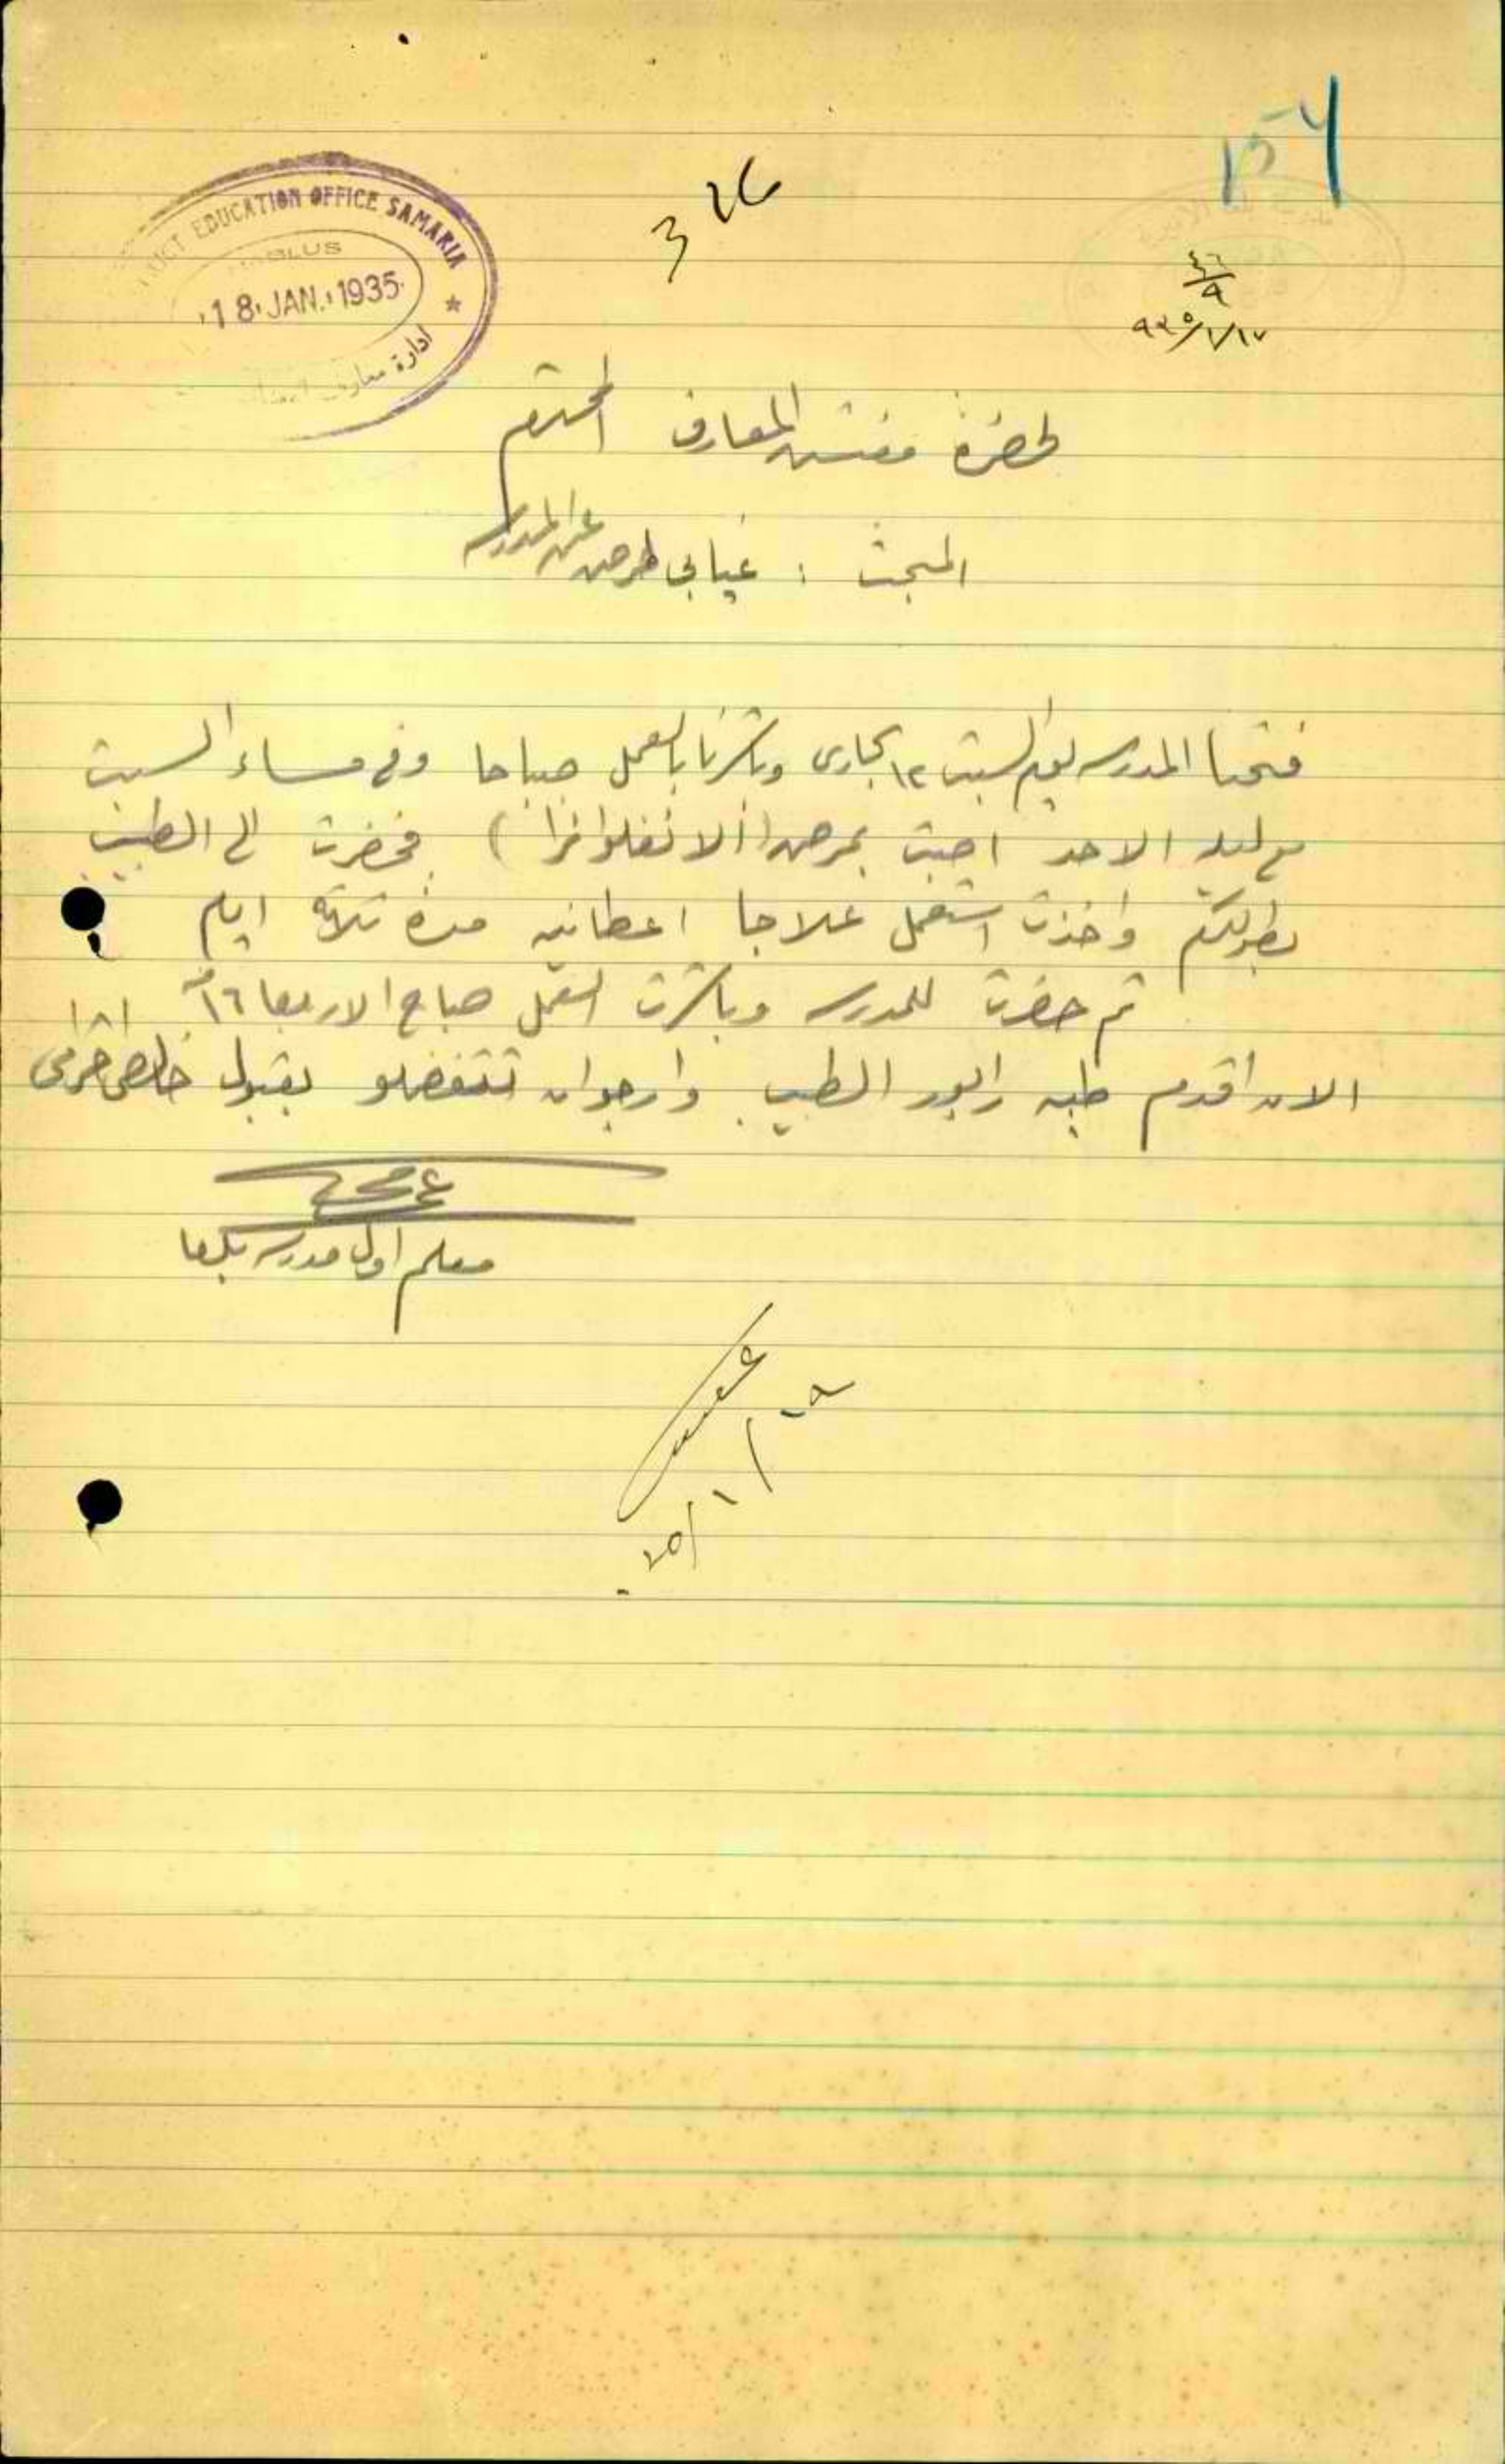 154
EDUCATION OFFICE SAMARIA
18 JAN. 1935
ادارة معارف
٤٦/٩
٩٣٥/١/١٧
لحضرة مفتش المعارف المحترم
المبحث : غيابي لمرض عن المدرسه
فتحنا المدرسه يوم السبت ١٢ الجاري وباشرنا بالعمل صباحا وفي مساء السبت
ليلة الاحد اصبت بمرض (الانفلوانزا) فحضرت الى الطبيب
بطولكرم واخذت استعمل علاجا اعطانيه مدة ثلاثة ايام
ثم حضرت للمدرسه وباشرت العمل صباح الاربعا ١٦ منه
الان اقدم طيه رابور الطبيب وارجو ان تتفضلو بقبول خالص احترامي
معلم اول مدرسة بلعا